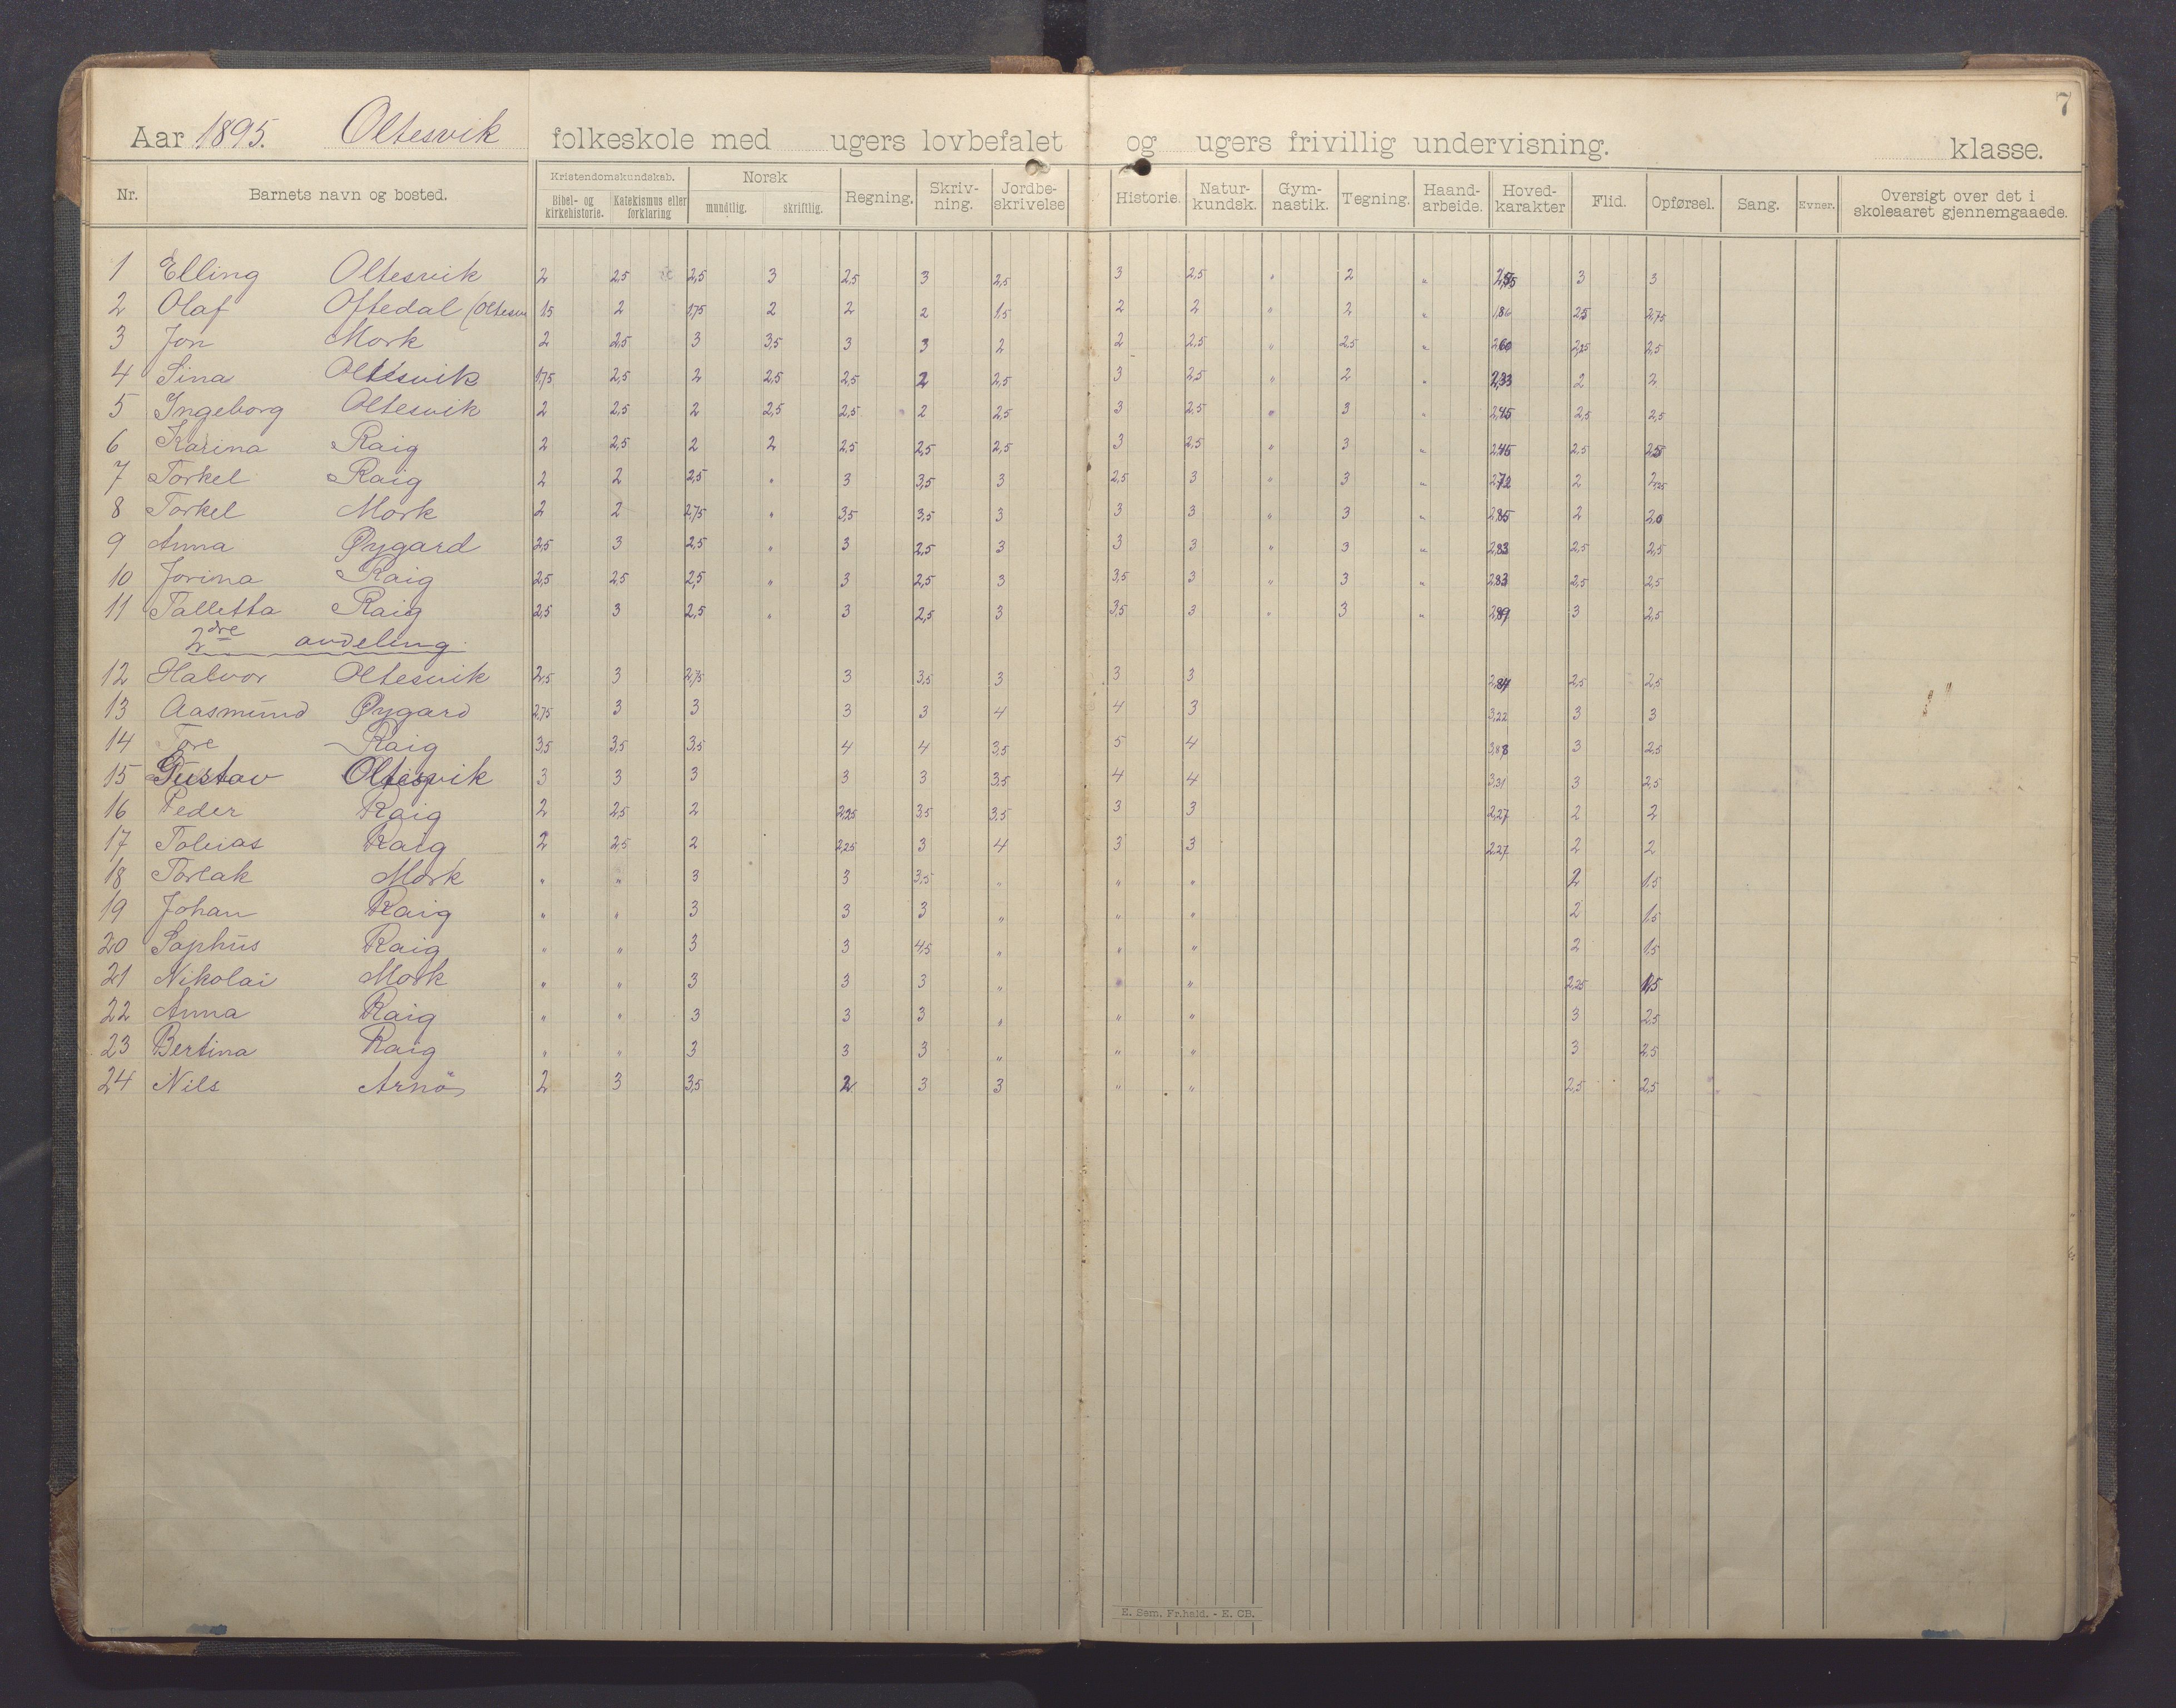 7
Aar 1895. Oltesvik folkeskole med ugers lovbefalet og ugers frivillig undervisning. klasse.
Nr. Barnets navn og bosted. Kristendomskundskab. Bibel- og kirkehistorie. Katekismus eller forklaring Norsk mundtlig. skriftlig. Regning. Skriv-ning. Jordbe-skrivelse Historie. Natur-kundsk. Gym-nastik. Tegning. Haand-arbeide. Hoved-karakter Flid. Opførsel. Sang. Evner. Oversigt over det i skoleaaret gjennemgaaede.
1 Elling Oltesvik 2 2,5 2,5 3 2,5 3 2,5 3 2,5 " 2 " 3 3
2 Olaf Oftedal (Oltesv 1,5 2 1,75 2 2 2 1,5 2 2 " 2 " 1,86 2,5 2,75
3 Jon Mork 2 2,5 3 3,5 3 3 2 2 2,5 " 2,5 " 2,60 2,25 2,5
4 Sina Oltesvik 1,75 2,5 2 2,5 2,5 2 2,5 3 2,5 " 2 " 2,33 2 2
5 Ingeborg Oltesvik 2 2,5 2 2,5 2,5 2 2,5 3 2,5 " 3 " 2,45 2,5 2,5
6 Karina Raig 2 2,5 2 2 2,5 2,5 2,5 3 2,5 " 3 " 2,45 2,5 2,5
7 Torkel Raig 2 2 2,5 " 3 3,5 3 2,5 3 " 3 " 2,72 2 2,25
8 Torkel Mork 2 2 2,75 " 3,5 3,5 3 3 3 " 3 " 2,85 2 2,0
9 Anna Øygard 2,5 3 2,5 " 3 2,5 3 3 3 " 3 " 2,83 2,5 2,5
10 Jorina Raig 2,5 2,5 2,5 " 3 2,5 3 3,5 3 " 3 " 2,83 2,5 2,5
11 Talletta Raig 2,5 3 2,5 " 3 2,5 3 3,5 3 " 3 " 2,89 3 2,5
2dre avdeling.
12 Halvor Oltesvik 2,5 3 2,75 3 3,5 3 3 3 2,84 2,5 2,5
13 Aasmund Øygard 2,75 3 3 3 3 4 4 3 3,22 3 3
14 Tore Raig 3,5 3,5 3,5 4 4 3,5 5 4 3,88 3 2,5
15 Gustav Oltesvik 3 3 3 3 3 3,5 4 4 3,31 3 2,5
16 Peder Raig 2 2,5 2 2,25 3,5 3,5 3 3 2,27 2 2
17 Tobias Raig 2 2,5 2 2,25 3 4 3 3 2,27 2 2
18 Torlak Mork " " 3 3 3,5 " " " 2 1,5
19 Johan Raig " " 3 3 3 " " " 2 1,5
20 Sophus Raig " " 3 3 4,5 " " " 2 1,5
21 Nikolai Mork " " 3 3 3 " " " 2,25 1,5
22 Anna Raig " " 3 3 3 " " " 3 2,5
23 Bertina Raig " " 3 3 3 " " " 3 2,5
24 Nils Arnö 2 3 3,5 2 3 3 " " 2,5 2,5
E. Sem. Fr.hald. - E. CB.